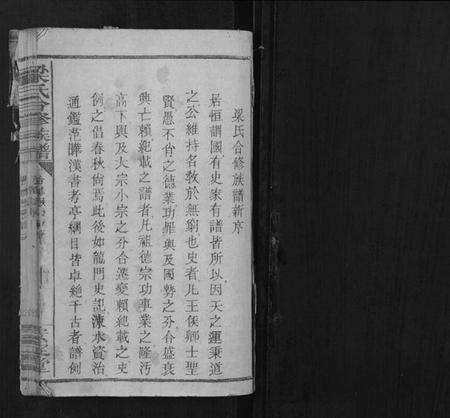 梁氏合修族譜新序
居恒謂國有史家有譜皆所以因天之運秉道
之公維持名教於無窮也史者凡王侯卿士聖
賢愚不肖之德業功罪與及國勢之分合盛衰
興亡賴紀載之譜者凡祖德宗功事業之隆汚
高下與及大宗小宗之分合遷變賴紀載之史
例之倡春秋尙焉此後如龍門史記涑水資治
通鑑范曄漢書考亭綱目皆卓絕千古者譜例
梁氏合修族譜